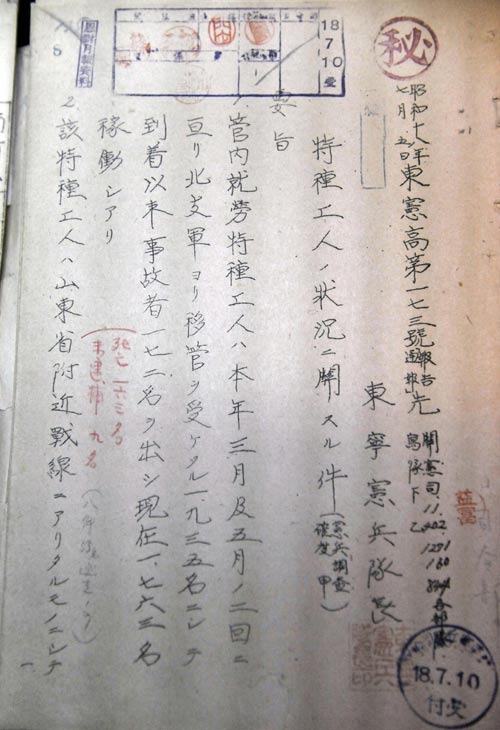 秘
18.7.10
受
昭和十八年
七月五日
東憲高第一七三號
報告
通報
先
關憲司、
各部隊
東寧憲兵隊長
特種工人ノ状況ニ關スル件
(憲兵調査
確度甲)
要旨
一、管内就勞特種工人ハ本年三月及五月ノ二回ニ
亘リ北支軍ヨリ移管ヲ受ケタル一、九三五名ニシテ
到着以来事故者一七二名ヲ出シ現在一、七六三名
稼働シアリ
死亡一六三名
未逮捕九名
2、該特種工人ハ山東省附近戰線ニアリタルモノニシテ
18.7.10
受付